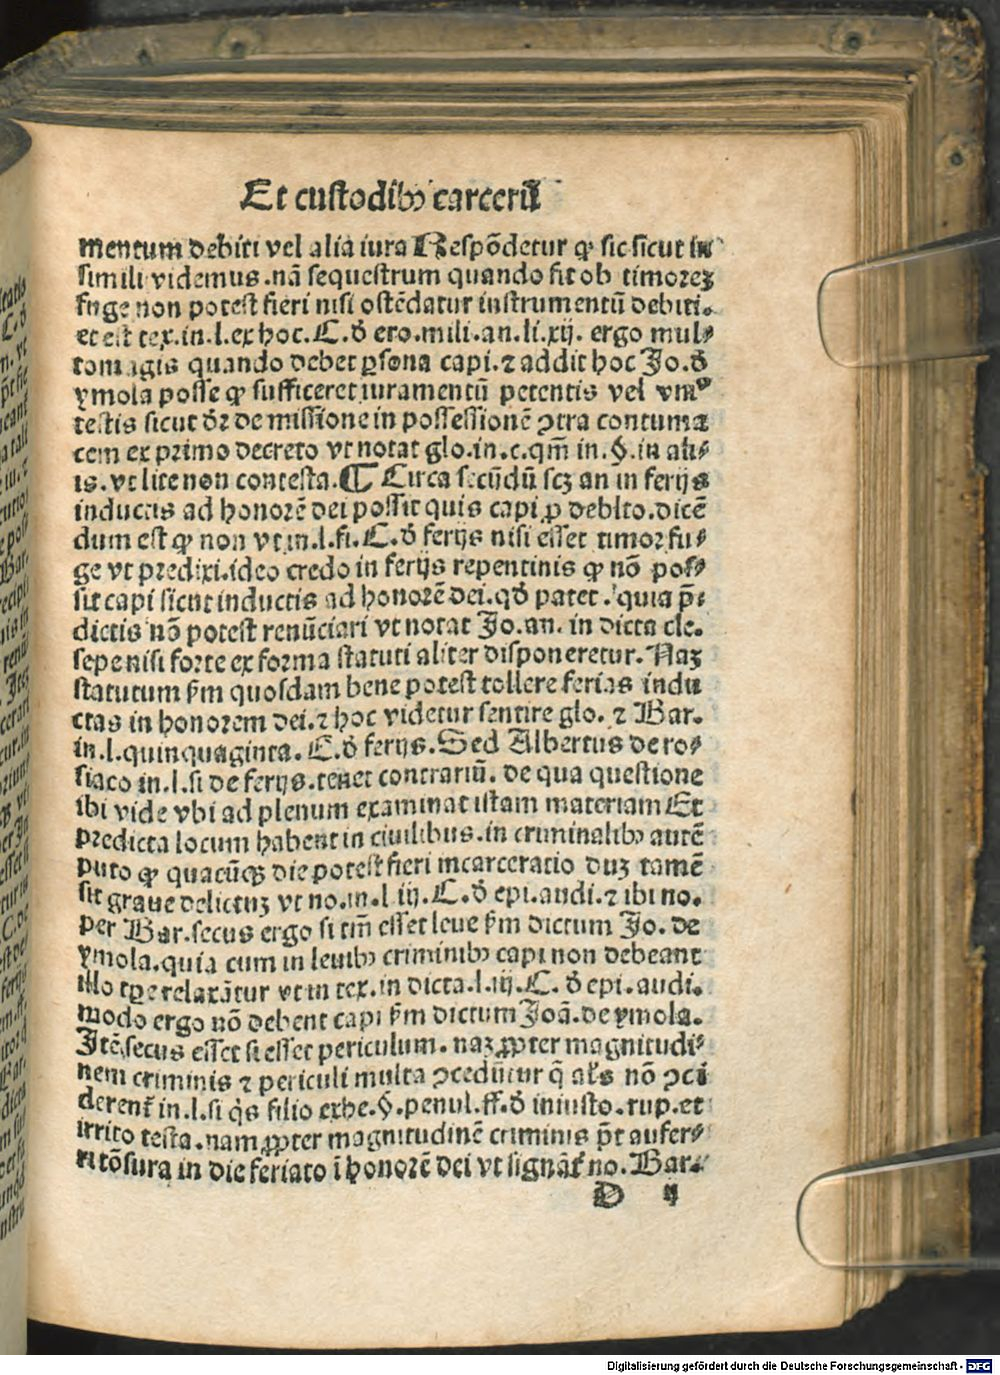 Et custodibꝰ carcerū
mentum debiti vel alia iura Respōdetur ꝙ sic sicut in
simili videmus.nā sequestrum quando fit ob timoreꝫ
fuge non potest fieri nisi ostēdatur instrumentū debiti.
et est tex.in.l.ex hoc.C.ð ero.mili.an.li.xij. ergo mul⸗
tomagis quando debet ꝑsona capi.⁊ addit hoc Jo.ð
ymola posse ꝙ sufficeret iuramentū petentis vel vniꝰ
testis sicut ðꝛ de missione in possessionē ꝯtra contuma
cem ex primo decreto vt notat glo.in.c.qm̄ in.§.in ali⸗
is.vt lite non contesta.¶ Circa secūdū scꝫ an in ferijs
inductis ad honorē dei possit quis capi ꝓ debito.dicē
dum est ꝙ non vt.in.l.fi.C.ð ferijs nisi esset timor fu⸗
ge vt predixi.ideo credo in ferijs repentinis ꝙ nō pos⸗
sit capi sicut inductis ad honorē dei.qð patet.quia p̄⸗
dictis nō potest renūciari vt notat Jo.an. in dicta cle.
sepe nisi forte ex forma statuti aliter disponeretur.Naꝫ
statutum ẜm quosdam bene potest tollere ferias indu
ctas in honorem dei.⁊ hoc videtur sentire glo. ⁊ Bar.
in.l.quinquaginta. C.ð ferijs.Sed Albertus de ro⸗
siaco in.l.si de ferijs.tenet contrariū. de qua questione
ibi vide vbi ad plenum examinat istam materiam Et
predicta locum habent in ciuilibus.in criminalibꝰ autē
puto ꝙ quacūqꝫ die potest fieri incarceratio duꝫ tamē
sit graue delictuꝫ vt no.in.l iij.C.ð epi.audi.⁊ ibi no.
per Bar.secus ergo si tm̄ esset leue ẜm dictum Jo. de
ymola.quia cum in leuibꝰ criminibꝰ capi non debeant
illo tꝑe relaxātur vt in tex.in dicta.l.iij.C. ð epi.audi.
modo ergo nō debent capi ẜm dictum Joā.de ymola.
Itē.secus esset si esset periculum. naꝫ ꝓpter magnitudi⸗
nem criminis ⁊ periculi multa ꝯcedūtur q̄ al̓s nō ꝯce
derent᷑ in.l.si q̇s filio exhe.§.penul.ff.ð iniusto.rup.et
irrito testa.nam ꝓpter magnitudinē criminis p̄t aufer⸗
ri tōsura in die feriato ī honorē dei vt signāt᷑ no. Bar.
D ij
Digitalisierung gefördert durch die Deutsche Forschungsgemeinschaft - DFG